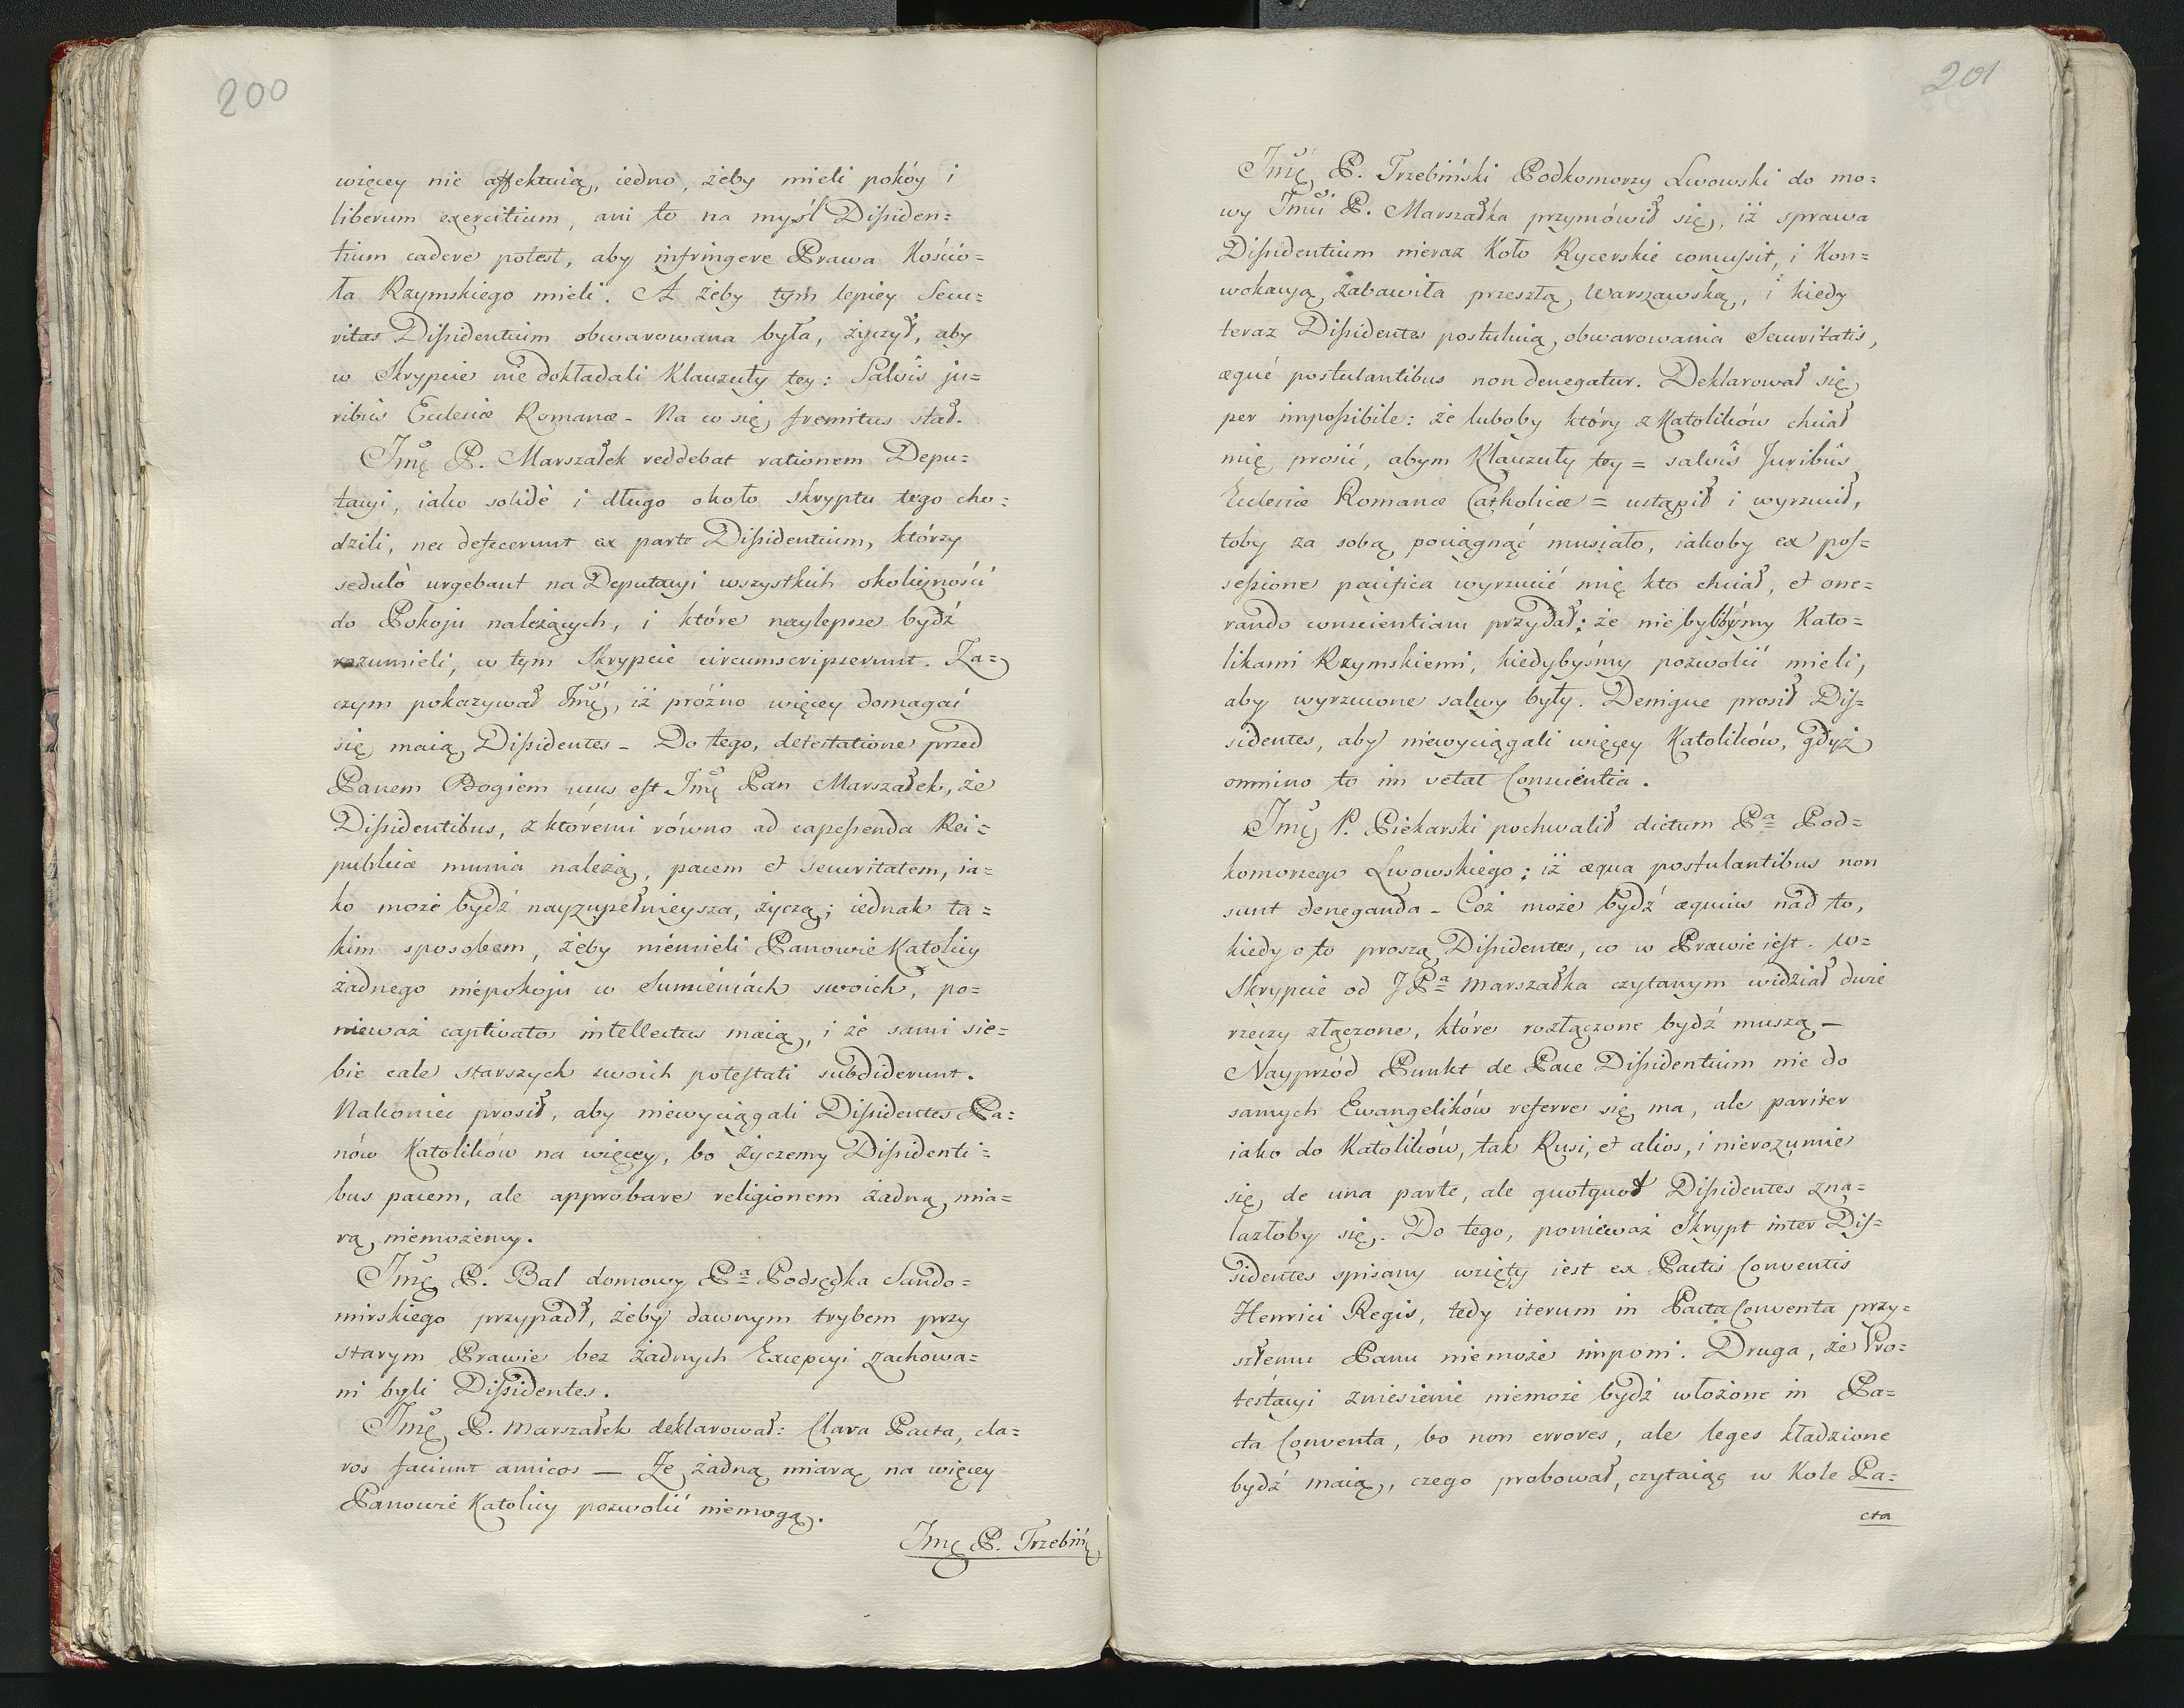 200
więcey nie affektuią, iedno, żeby mieli pokóy i
liberum exercitium, ani to na myśl Dissiden=
tium cadere potest, aby infringere Prawa Kościo=
ła Rzymskiego mieli. A żeby tym lepiey Secu=
ritas Dissidentium obwarowana była, życzył, aby
w Skrypcie nie dokładali Klauzuły tey: Salvis ju=
ribus Ecclesiæ Romanæ - Na co się fremitus stał.
Jmę P. Marszałek reddebat rationem Depu=
tacyi, iako solidè i długo około skryptu tego cho=
dzili, nec defecerunt ex parte Dissidentium, którzy
sedulò urgebant na Deputacyi wszystkich okoliczności
do Pokoju należących, i które naylepsze bydź
rozumieli, w tym Skrypcie circumscripserunt. Za=
czym pokazywał Jmę, iż próżno więcey domagać
się maią Dissidentes - Do tego, detestatione przed
Panem Bogiem usus est Jmę Pan Marszałek, że
Dissidentibus, z któremi równo ad capessenda Rei=
publicæ munia należą, pacem et securitatem, ia=
ko może bydź nayzupełnieysza, życzą; iednak ta=
kim sposobem, żeby niemieli Panowie Katolicy
żadnego niepokoju w Sumieniach swoich, po=
nieważ captivatos intellectus maią, i że sami sie=
bie cale starszych swoich potestati subdiderunt.
Nakoniec prosił, aby niewyciągali Dissidentes Pa=
nów Katolików na więcey, bo życzemy Dissidenti=
bus pacem, ale approbare religionem żadną mia=
rą niemożemy.
Jmę P. Bal domowy Pa Podsędka Sando=
mirskiego przypadł, żeby dawnym trybem przy
starym Prawie bez żadnych Excepcyi zachowa=
ni byli Dissidentes.
Jmę P. Marszałek deklarował: Clara Pacta, cla=
ros faciunt amicos — Że żadną miarą na więcey
Panowie Katolicy pozwolić niemogą.
Jmę P. Trzebiń
201
Jmę P. Trzebiński Podkomorzy Lwowski do mo=
wy Jmci P. Marszałka przymówił się, iż sprawa
Dissidentium nieraz Koło Rycerskie concussit, i Kon=
wokacyą zabawiła przeszłą Warszawską, i kiedy
teraz Dissidentes postuluią obwarowania Securitatis,
æquè postulantibus non denegatur. Deklarował się
per impossibile: że luboby który z Katolików chciał
mię prosić, abym Klauzuły tey = salvis Juribus
Ecclesiæ Romanæ Catholicæ = ustąpił i wyrzucił,
toby za sobą pociągnąć musiało, iakoby ex pos=
sessione pacifica wyrzucić mię kto chciał, et one=
rando conscientiam przydał: że nie bylibyśmy Kato=
likami Rzymskiemi, kiedybyśmy pozwolić mieli,
aby wyrzucone salwy były. Denique prosił Dis=
sidentes, aby niewyciągali więcey Katolików, gdyż
omnino to im vetat Conscientia.
Jmę P. Piekarski pochwalił dictum Pa Pod=
komorzego Lwowskiego; iż æqua postulantibus non
sunt deneganda - Coż może bydź æquius nad to,
kiedy o to proszą Dissidentes, co w Prawie iest. W=
Skrypcie od JPa Marszałka czytanym widział dwie
rzeczy złączone, które rozłączone bydź muszą —
Nayprzód Punkt de Pace Dissidentium nie do
samych Ewangelików referre się ma, ale pariter
iako do Katolików, tak Rusi, et alios, i nierozumie
się de una parte, ale quotquot Dissidentes zna=
lazłoby się. Do tego, ponieważ Skrypt inter Dis=
sidentes spisany wzięty iest ex Pactis Conventis
Henrici Regis, tedy iterum in Pacta Conventa przy=
szłemu Panu niemoże imponi. Druga, że Pro=
testacyi zniesienie niemoże bydź włożone in Pa=
cta Conventa, bo non errores, ale leges kładzione
bydź maią, czego probował, czytaiąc w Kole Pa=
cta